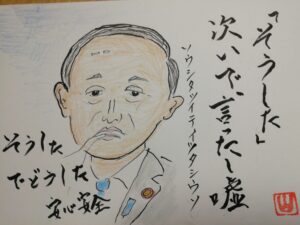 「そうした」
次いで、言ったし嘘
ソウシタツイデイッタシウソ
そうした
でどうした
安心安全